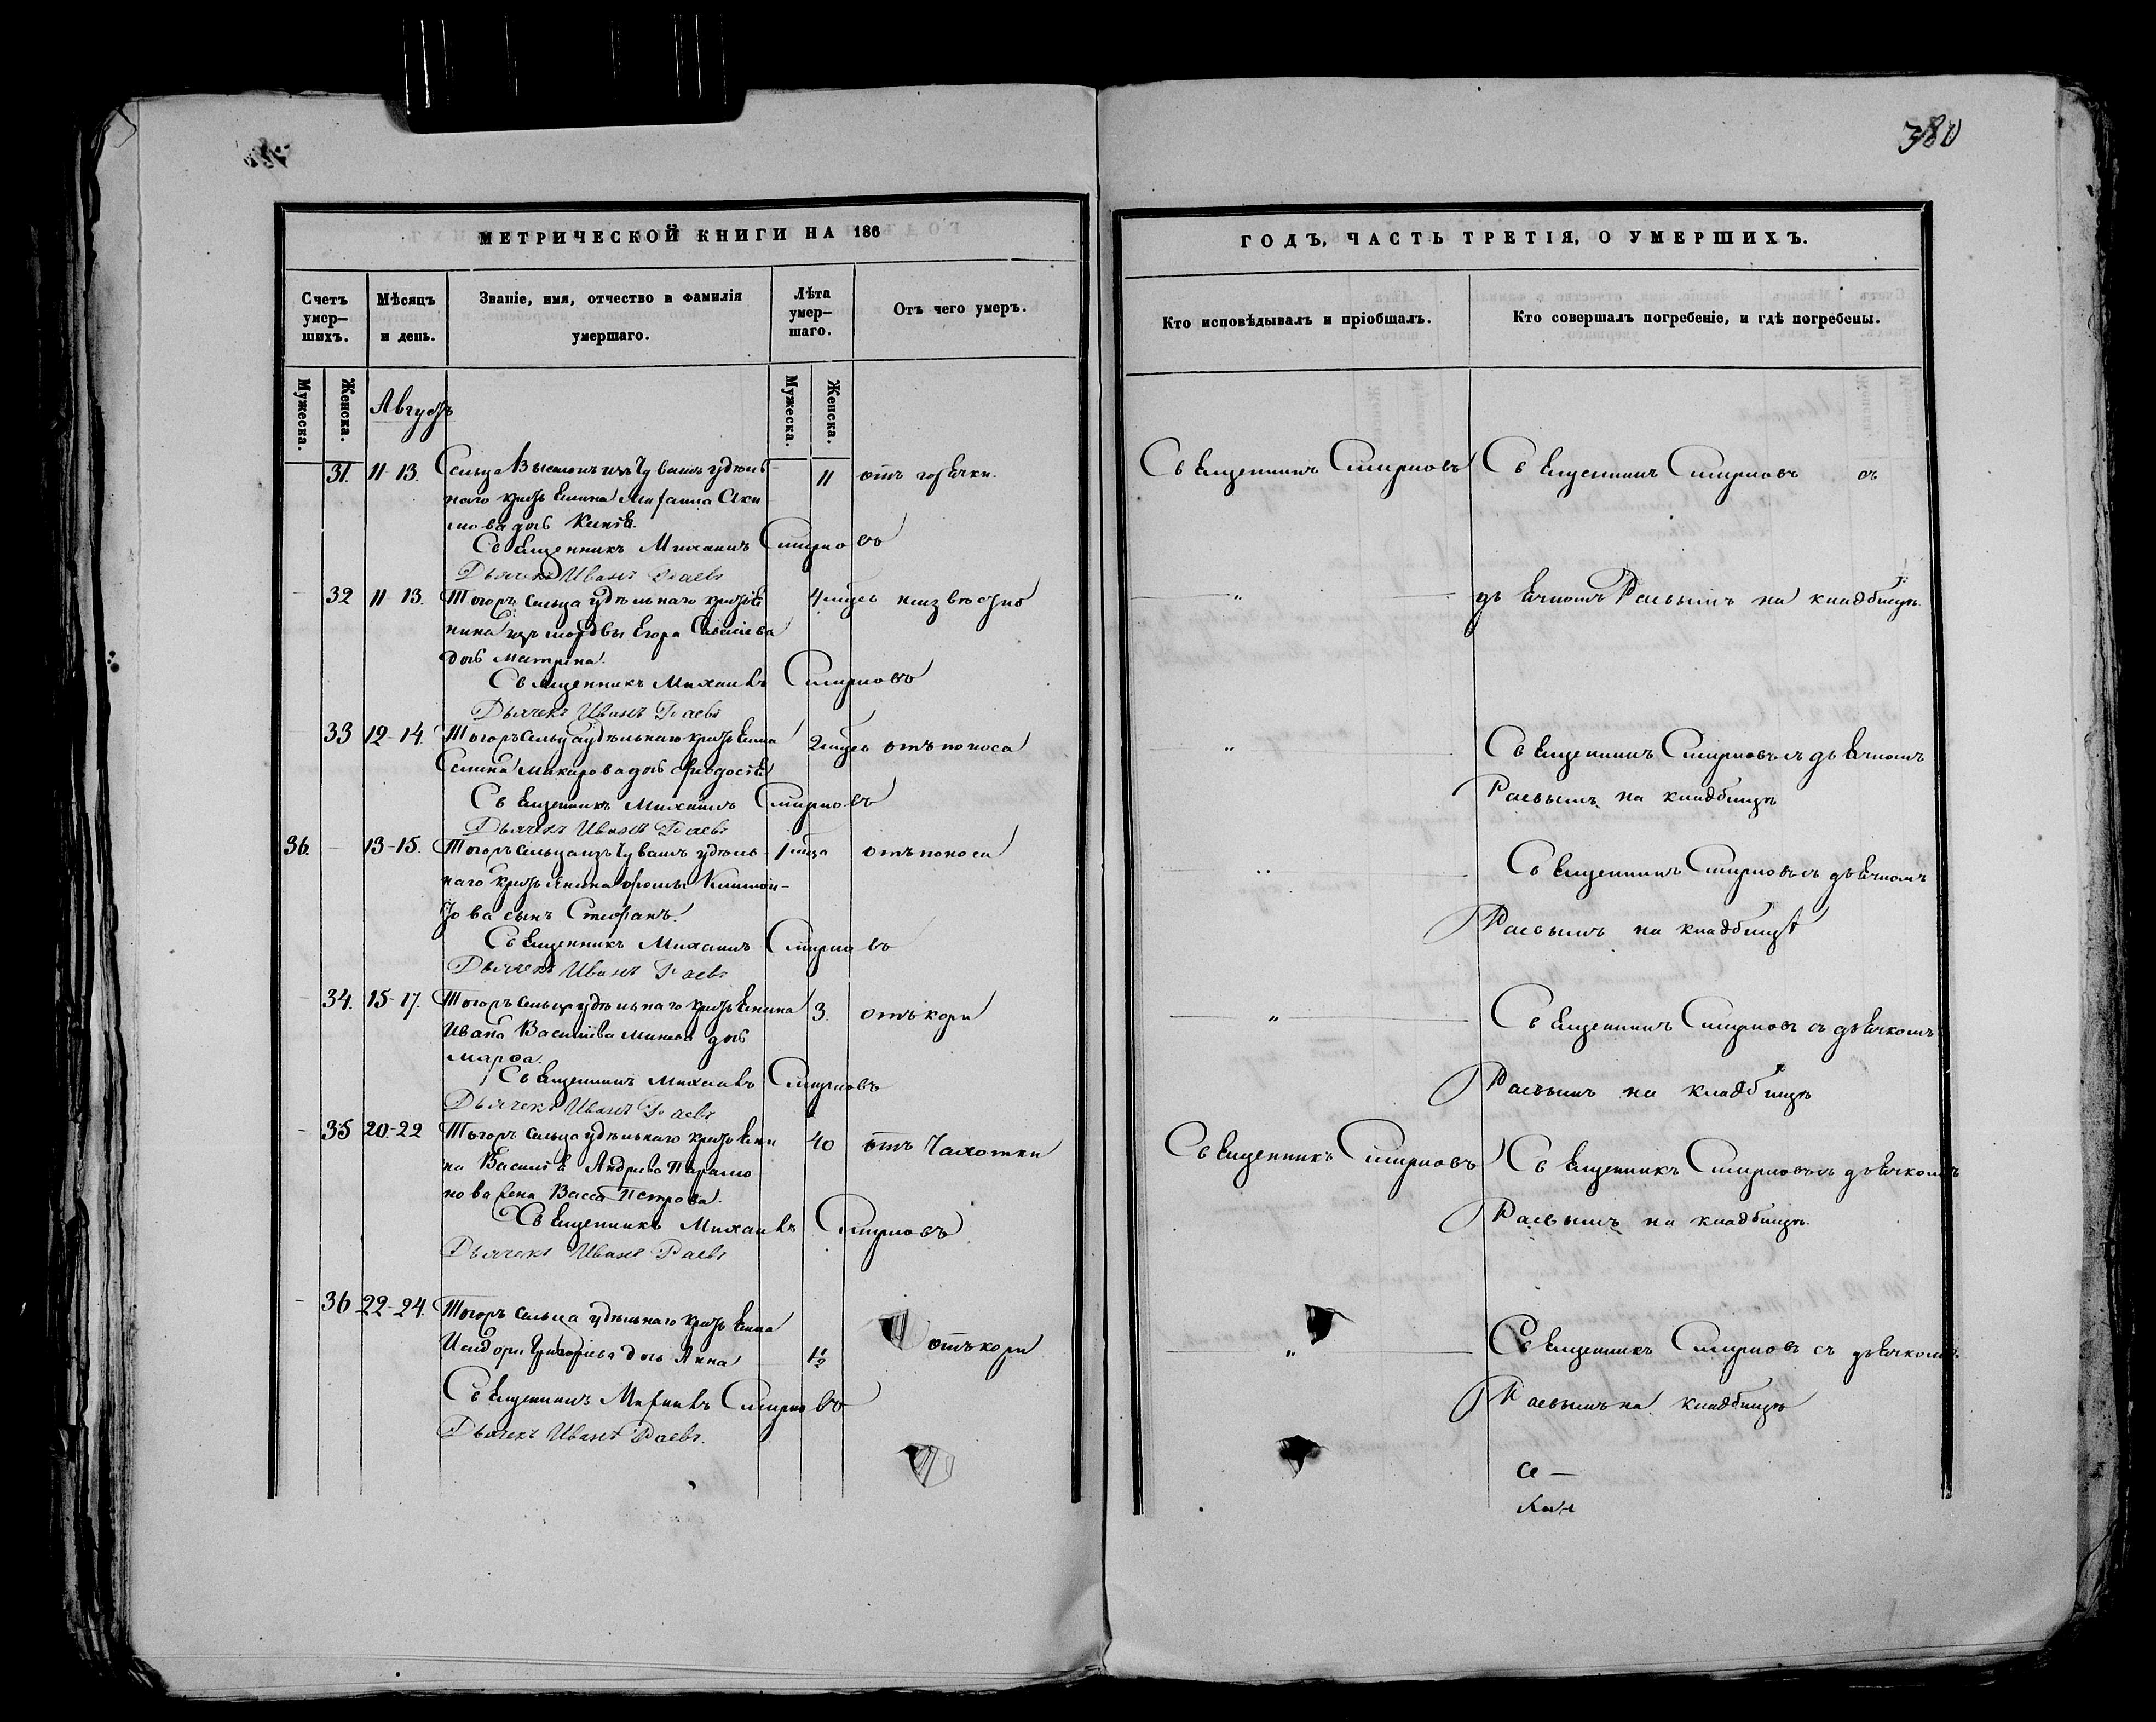 380
МЕТРИЧЕСКОЙ КНИГИ НА 186
ГОДЪ, ЧАСТЬ ТРЕТІЯ, О УМЕРШИХЪ.
Счетъ умер-шихъ.
Мѣсяцъ и день.
Званіе, имя, отчество и фамилія умершаго.
Лѣта умер-шаго.
Отъ чего умеръ.
Кто исповѣдывалъ и пріобщалъ.
Кто совершалъ погребеніе, и гдѣ погребены.
Мужеска.
Женска.
Августъ
Мужеска.
Женска.
31. 11 13. Сельца изъ Чувашъ удѣль 11 отъ горячки. Священникъ Смирновъ Священникъ Смирновъ съ
наго крестьянина
мова дочь
Священникъ Михаилъ Смирновъ
Дьячекъ Иванъ Раевъ
32 11 13. Тогожъ сельца удѣльнаго крестья 4 мѣсц неизвѣстно " дьячкомъ Раевымъ на кладбищѣ.
нина изъ мордвы Егора Савельева
дочь Матрена.
Священникъ Михаилъ Смирновъ
Дьячекъ Иванъ Раевъ
33 12-14. Тогожъ сельца удѣльнаго крестьянина 2 мѣсц отъ поноса " Священникъ Смирновъ съ дьячкомъ
Семена Макарова дочь Феодосія Раевымъ на кладбищѣ
Священникъ Михаилъ Смирновъ
Дьячекъ Иванъ Раевъ
36. - 13-15. Тогожъ сельца изъ Чувашъ удѣль- 1 мсца отъ поноса " Священникъ Смирновъ съ дьячкомъ
наго крестьянина Фомы Климон- Раевымъ на кладбищѣ
това сынъ Стефанъ.
Священникъ Михаилъ Смирновъ
Дьячекъ Иванъ Раевъ
34. 15-17. Тогожъ сельца удѣльнаго крестьянина 3. отъ кори " Священникъ Смирновъ съ дьячкомъ
Ивана Васильева дочь Раевымъ на кладбищѣ
Марѳа.
Священникъ Михаилъ Смирновъ
Дьячекъ Иванъ Раевъ
- 35 20-22 Тогожъ сельца удѣльнаго крестьяни 40 отъ Чахотки Священникъ Смирновъ Священникъ Смирновъ съ дьячкомъ
на Василія Андреева Парамо Раевымъ на кладбищѣ.
нова жена Васса Петрова.
Священникъ Михаилъ Смирновъ
Дьячекъ Иванъ Раевъ
- 36 22-24. Тогожъ сельца удѣльнаго крестьянина
Исидора Григорьева дочь Анна 1½ отъ кори " Священникъ Смирновъ съ дьячкомъ.
Раевымъ на кладбищѣ
Священникъ Михаилъ Смирновъ
Дьячекъ Иванъ Раевъ.
Се—